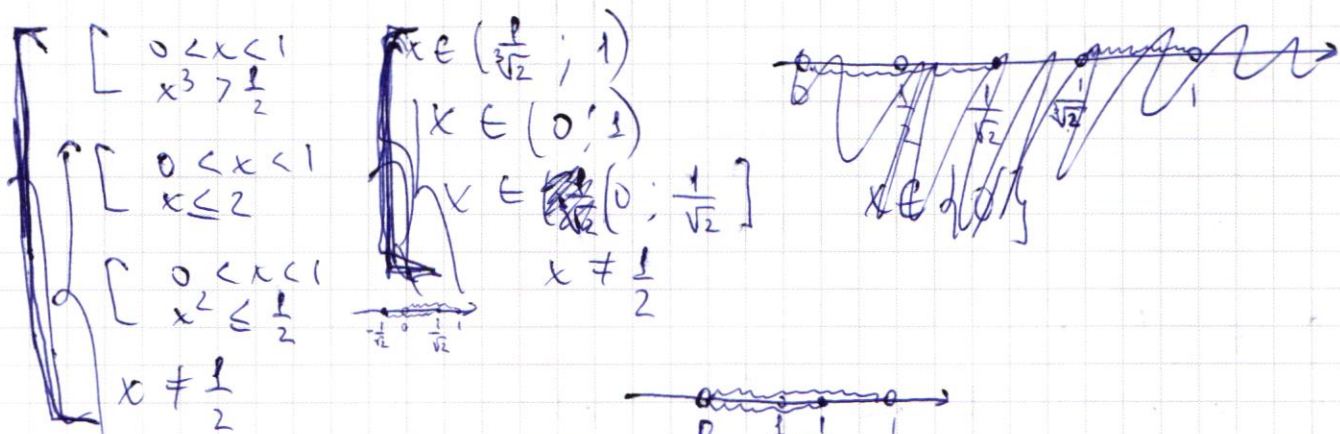 0 < x < 1
x³ > 1/2
0 < x < 1
x ≤ 2
0 < x < 1
x² ≤ 1/2
x ≠ 1/2
x ∈ (1/∛2 ; 1)
x ∈ (0 ; 1)
x ∈ (0 ; 1/√2]
x ≠ 1/2
-1/√2 0 1/√2 1
0 1/2 1/√2 1/∛2 1
0 1 1 1